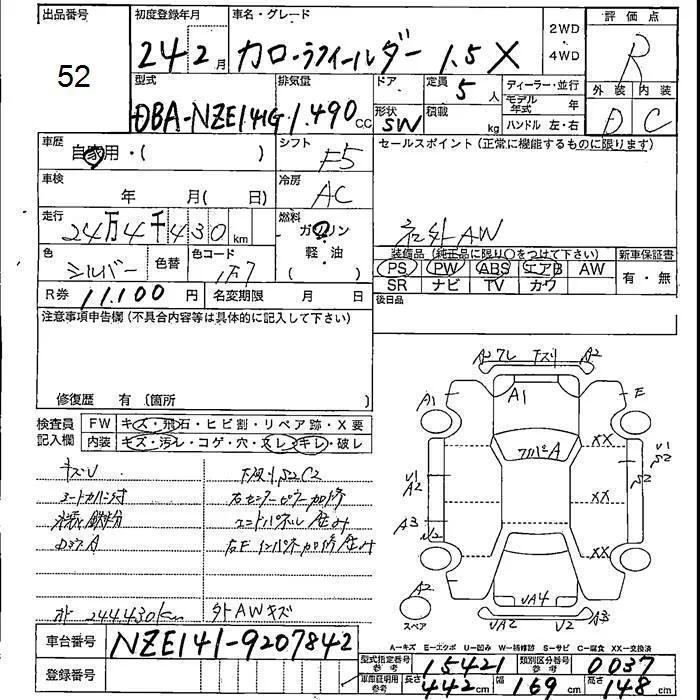 出品番号 52
初度登録年月 24 2月
車名・グレード カローラフィールダー 1.5 X
2WD
4WD
評価点 R
外装 内装
D C
型式 DBA-NZE141G
排気量 1.490 CC
ドア
形状 SW
定員 5 人
積載 kg
ディーラー・並行
モデル年式 年
ハンドル 左・右
車歴 自家用・( )
シフト F5
セールスポイント (正常に機能するものに限ります)
社外AW
車検 年 月( 日)
冷房 AC
走行 24万4千430 km
燃料 ガソリン
軽油
( )
色 シルバー 色替 色コード 1F7
装備品 (純正品に限り○をつけて下さい)
PS PW ABS エアB AW
SR ナビ TV カワ
新車保証書
有・無
R券 11.100 円
名変期限 月 日
後日品
注意事項申告欄(不具合内容等は具体的に記入して下さい)
修復歴 有 〔箇所 〕
検査員記入欄
FW キズ・飛石・ヒビ割・リペア跡・X要
内装 キズ・汚レ・コゲ・穴・スレ・キレ・破レ
キズU
下廻りS2C2
右センターピラー加修
エンドパネル 歪み
右Fインパネ加修歪み
244430km
外AWキズ
A2 ワレ 下スリ A2
A1 A1 E
フロントA
XX XX XX
U1
S2
S2
U1
A2
A3
U2
A2
スペア
UA4
UA2 U2 A3
A-キズ E-エクボ U-凹み W-補修跡 S-サビ C-腐食 XX-交換済
車台番号 NZE141-9207842
登録番号
型式指定番号 参考 15421
類別区分番号 参考 0037
車庫証明用 参考 長さ 442cm 幅 169cm 高さ 148cm